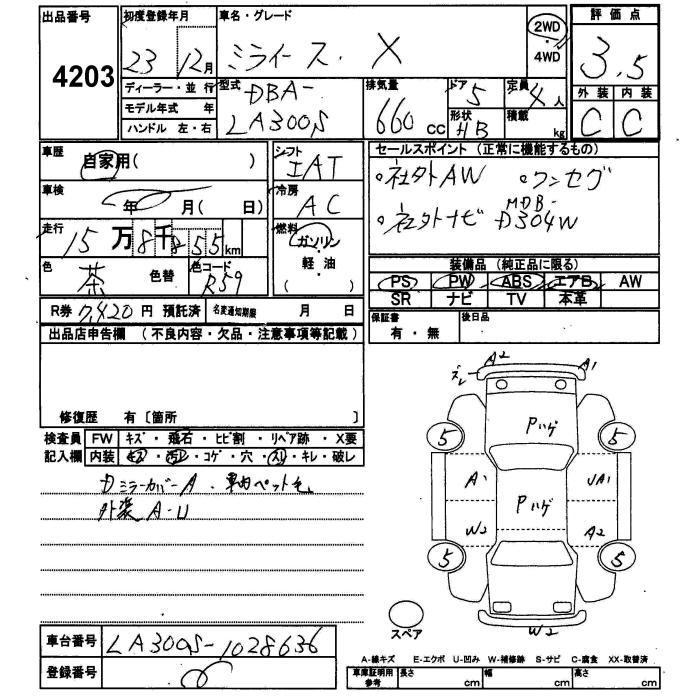 出品番号
4203
初度登録年月
23 12月
車名・グレード
ミライース. X
2WD
・
4WD
評価点
3.5
外装 内装
C C
ディーラー・並行
モデル年式 年
ハンドル 左・右
型式
DBA-
LA300S
排気量
660 cc
ドア 5
形状 HB
定員 4人
積載 kg
車歴
自家用( )
車検
年 月( 日)
走行
15万8千855km
色
茶 色替
色コード
R59
シフト
IAT
冷房
AC
燃料
ガソリン
軽・油
( )
セールスポイント (正常に機能するもの)
社外AW ワンセグ
MDB-
社外ナビ D304W
装備品 (純正品に限る)
PS PW ABS エアB AW
SR ナビ TV 本革
R券 7,420 円 預託済 名変通知期限 月 日
保証書
有・無
後日品
出品店申告欄 (不良内容・欠品・注意事項等記載)
修復歴 有〔箇所 〕
検査員
記入欄
FW キズ・飛石・ヒビ割・リペア跡・X要
内装 キズ・汚レ・コゲ・穴・スリ・キレ・破レ
Dミラーカバー A. 車内ペット毛
外装 A-U
A2 A1
ズレ
Pハゲ
5 5
A1 UA1
Pハゲ
W2 A2
5 5
W2
スペア
車台番号
LA300S-1028636
登録番号
A-線キズ E-エクボ U-凹み W-補修跡 S-サビ C-腐食 XX-取替済
車庫証明用
参考
長さ cm 幅 cm 高さ cm